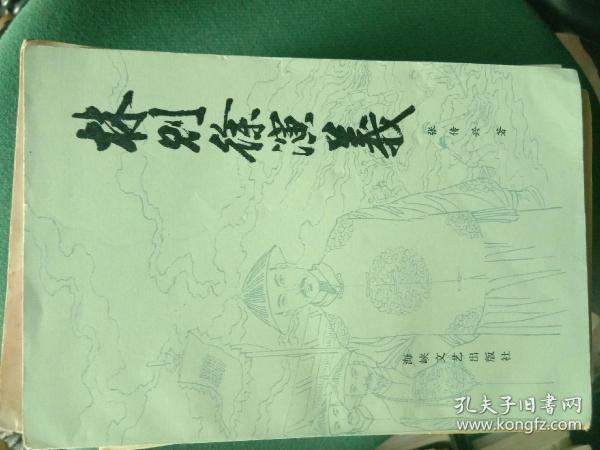 林则徐演義
张传兴 著
海峡文艺出版社
孔夫子旧书网
www.kongfz.com